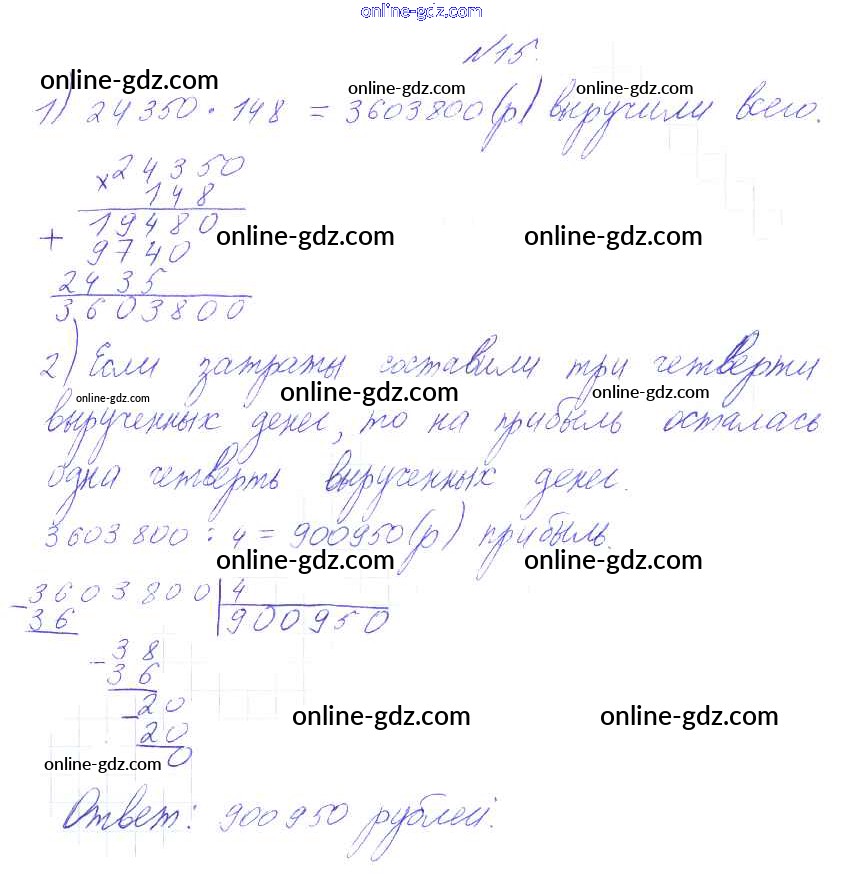 online-gdz.com
№15.
online-gdz.com online-gdz.com online-gdz.com
1) 24350 · 148 = 3603800 (р) выручили всего.
× 24350
148
+ 19480 online-gdz.com online-gdz.com
9740
2435
3603800
2) Если затраты составили три четверти
online-gdz.com online-gdz.com online-gdz.com
вырученных денег, то на прибыль осталась
одна четверть вырученных денег.
3603800 : 4 = 900950 (р) прибыль.
online-gdz.com online-gdz.com
- 3603800 | 4
36 900950
- 38
36
- 20
online-gdz.com online-gdz.com
20
0
online-gdz.com
Ответ: 900950 рублей.